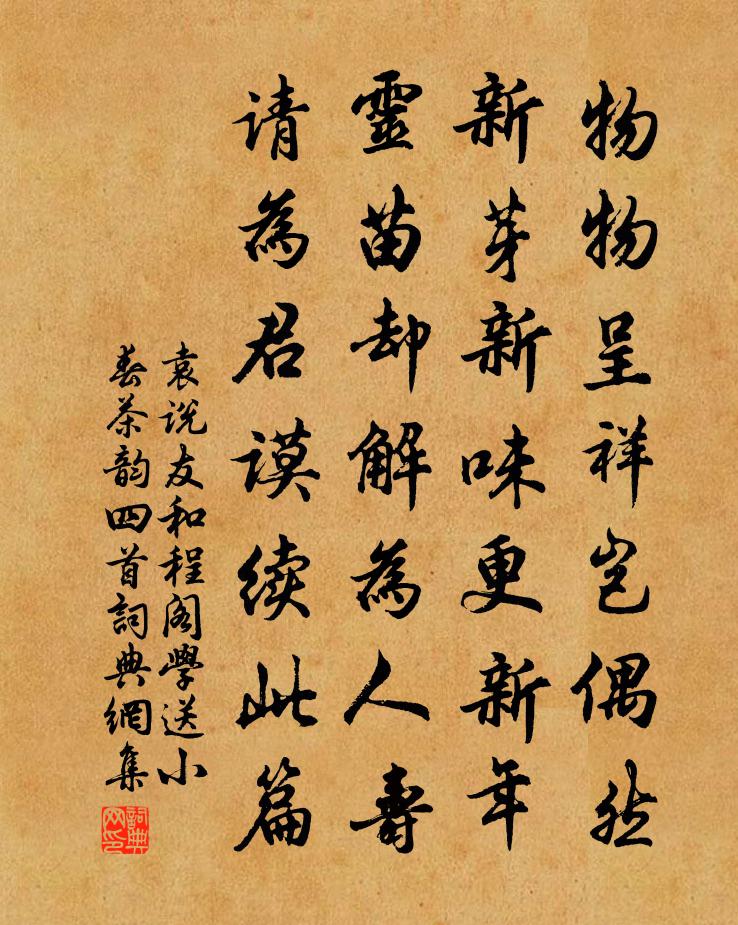 物物呈祥岂偶然
新芽新味更新年
靈苗却解為人壽
请為君谟续此篇
袁说友和程阁學送小
春茶韵四首詞典網集
詞典网印